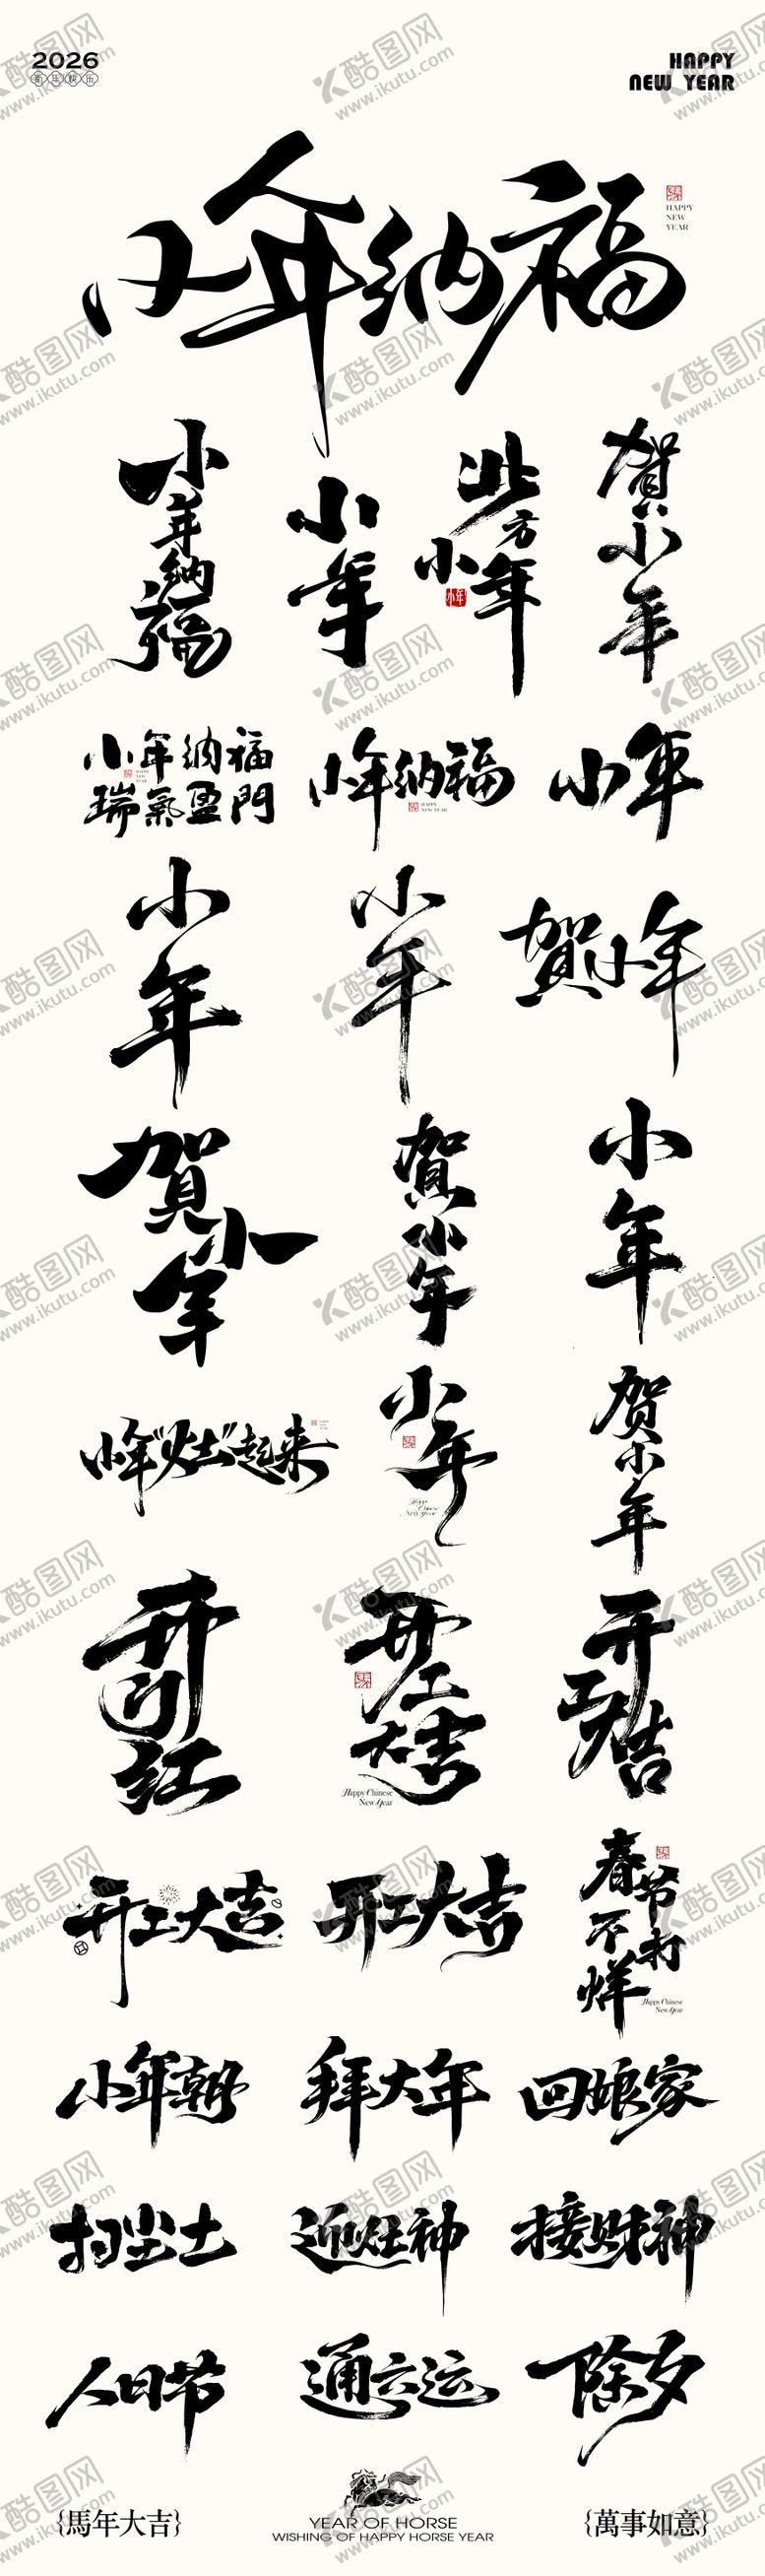 2026
新年快乐
HAPPY
NEW YEAR
小年纳福
HAPPY
NEW
YEAR
小年纳福
小年
北方小年
小年
賀小年
小年纳福
瑞氣盈門
HAPPY
NEW
YEAR
小年纳福
HAPPY
NEW YEAR
小年
小年
小年
賀小年
賀小年
賀小年
小年
小年“灶”起来
小年
Happy
Chinese
New Year
贺小年
开门红
开工大吉
Happy Chinese
New Year
开工大吉
开工大吉
开工大吉
春节不打烊
Happy Chinese
New Year
小年朝
拜大年
回娘家
扫尘土
迎灶神
接财神
人日节
通六运
除夕
{馬年大吉}
YEAR OF HORSE
WISHING OF HAPPY HORSE YEAR
{萬事如意}
酷图网
www.ikutu.com